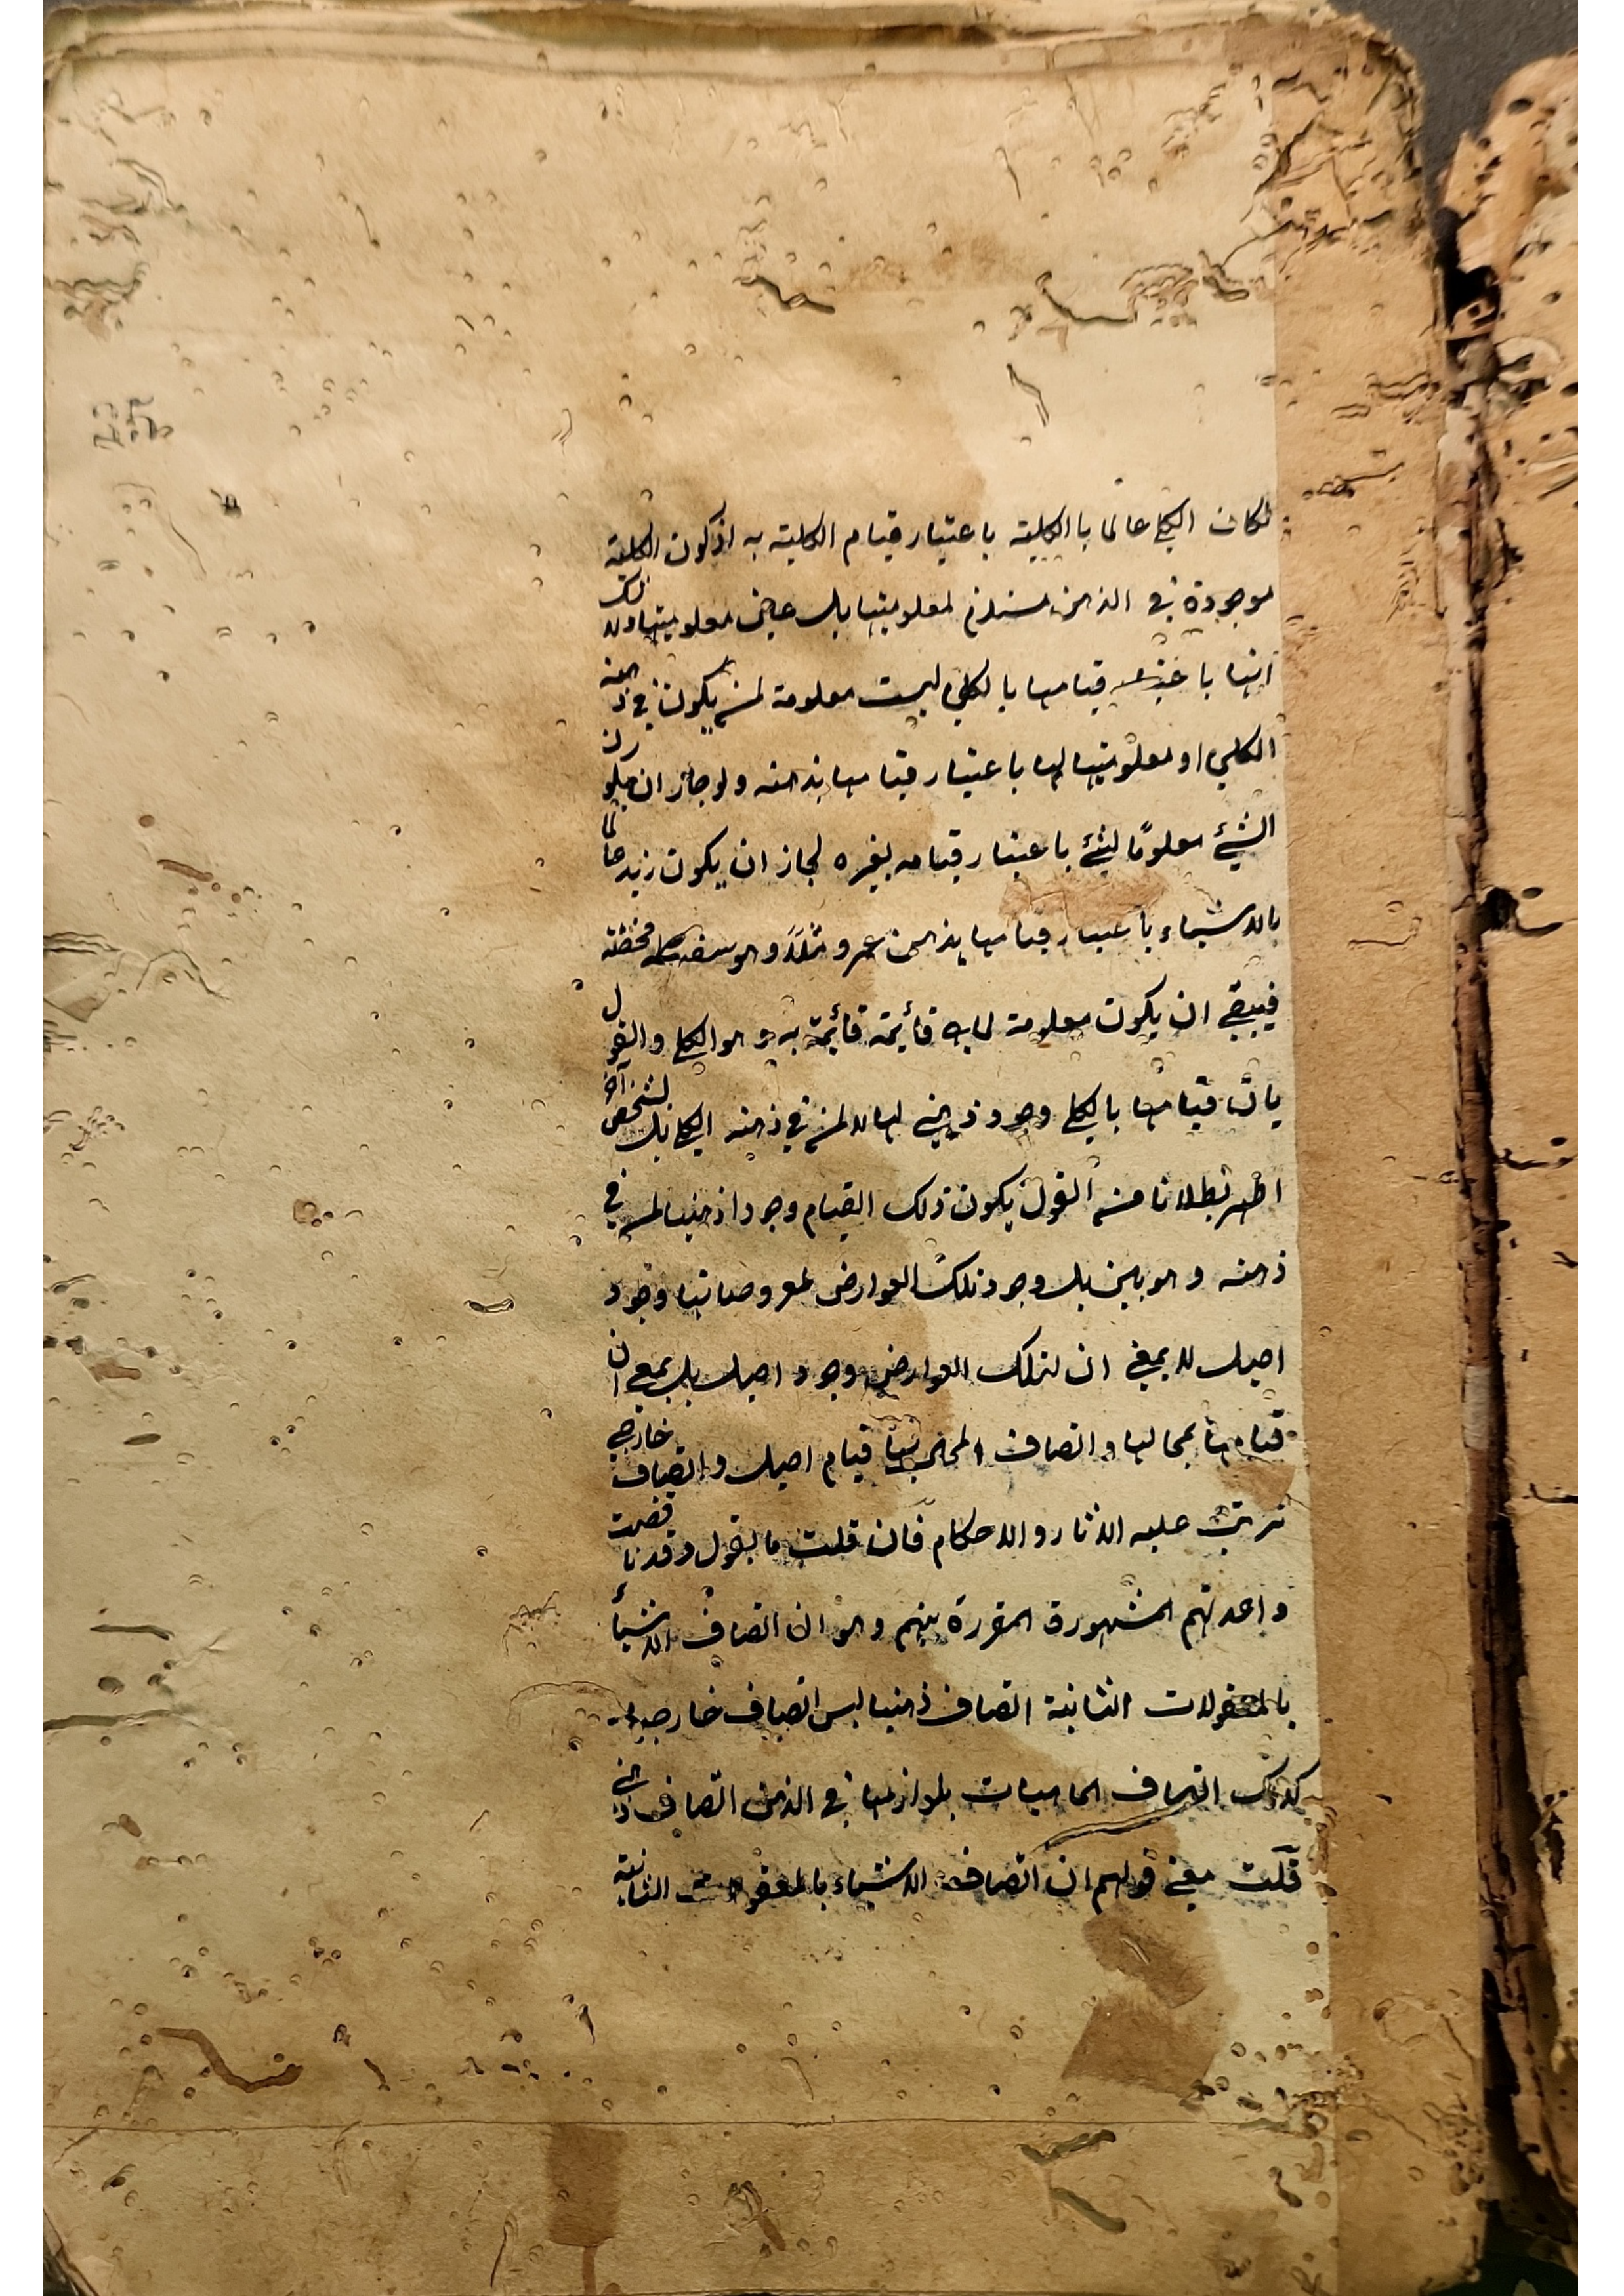 لكان الكلي عالما بالكلية باعتبار قيام الكلية به اذ كون الكلية
موجودة في الذهن مستلزم لمعلوميتها بل عين معلوميتها ولا شك
انها باعتبار قيامها بالكلي ليست معلومة لمن يكون في ذهنه
الكلي او معلوميتها لها باعتبار قيامها بذهنه ولو جاز ان يكون
الشيء معلومًا لشيء باعتبار قيامه بغيره لجاز ان يكون زيد عالما
بالاشياء باعتبار قيامها بذهن عمرو مثلا وهو سفسطه محضة
فيبقى ان يكون معلومة لما به قائمة قائمة به و هو الكلي والقول
بان قيامها بالكلي وجود ذهني لها لا لمن في ذهنه الكلي بل لشخص آخر
اظهر بطلانا من القول بكون ذلك القيام وجودا ذهنيا لمن في
ذهنه وهو بين بل وجود تلك العوارض لمعروضاتها وجود
اصيل لا بمعنى ان لتلك العوارض وجود اصيل بل بمعنى ان
قيامها بمحالها واتصاف المحال بها قيام اصيل واتصاف خارجي
ترتب عليه الاثار والاحكام فان قلت ما يقول وقد ناقضت
واعدتهم المشهورة المقررة بينهم وهو ان اتصاف الاشيأ
بالمعقولات الثانية اتصاف ذهنيا ليس اتصاف خارجيا
كذلك اتصاف الماهيات بلوازمها في الذهن اتصاف ذهني
قلت معنى قولهم ان اتصاف الاشياء بالمعقولات الثانية